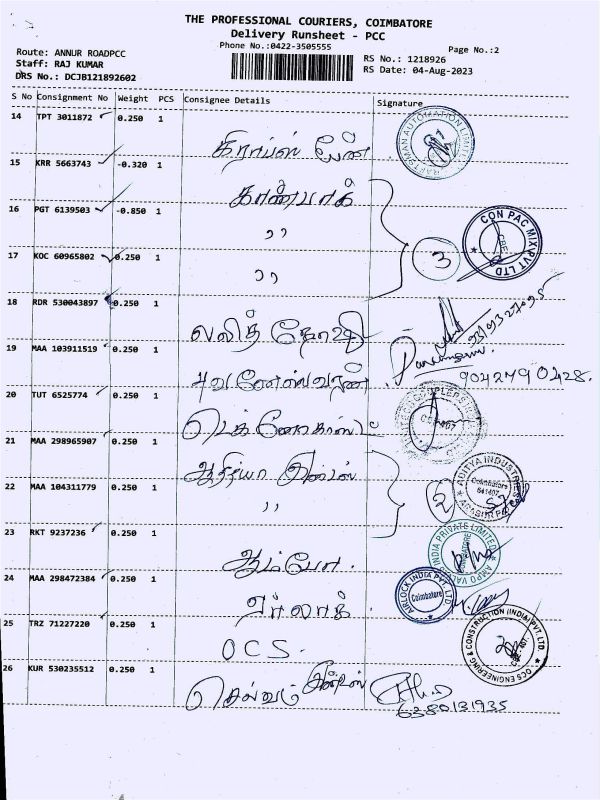 THE PROFESSIONAL COURIERS, COIMBATORE
Delivery Runsheet - PCC
Phone No.:0422-3505555
Page No.:2
Route: ANNUR ROADPCC
Staff: RAJ KUMAR
DRS No.: DCJB121892602
RS No.: 1218926
RS Date: 04-Aug-2023
S No Consignment No Weight PCS Consignee Details Signature
14 TPT 3011872 0.250 1
15 KRR 5663743 -0.320 1
16 PGT 6139503 -0.850 1
,,
CON PAC MIX PVT LTD
CBE
3
17 KOC 60965802 0.250 1
,,
18 RDR 530043897 0.250 1
லலித்
19 MAA 103911519 0.250 1
9042790428.
20 TUT 6525774 0.250 1
21 MAA 298965907 0.250 1
ஆதித்யா
ADITYA INDUSTRIES
Coimbatore
641407
2
22 MAA 104311779 0.250 1
,,
23 RKT 9237236 0.250 1
ஆம்போ
INDIA PRIVATE LIMITED
24 MAA 298472384 0.250 1
ஏர்லாக்
AIRLOCK INDIA PVT. LTD
Coimbatore
25 TRZ 71227220 0.250 1
OCS.
OCS ENGINEERING & CONSTRUCTION (INDIA) PVT. LTD.
26 KUR 530235512 0.250 1
செல்வம்
6380131935